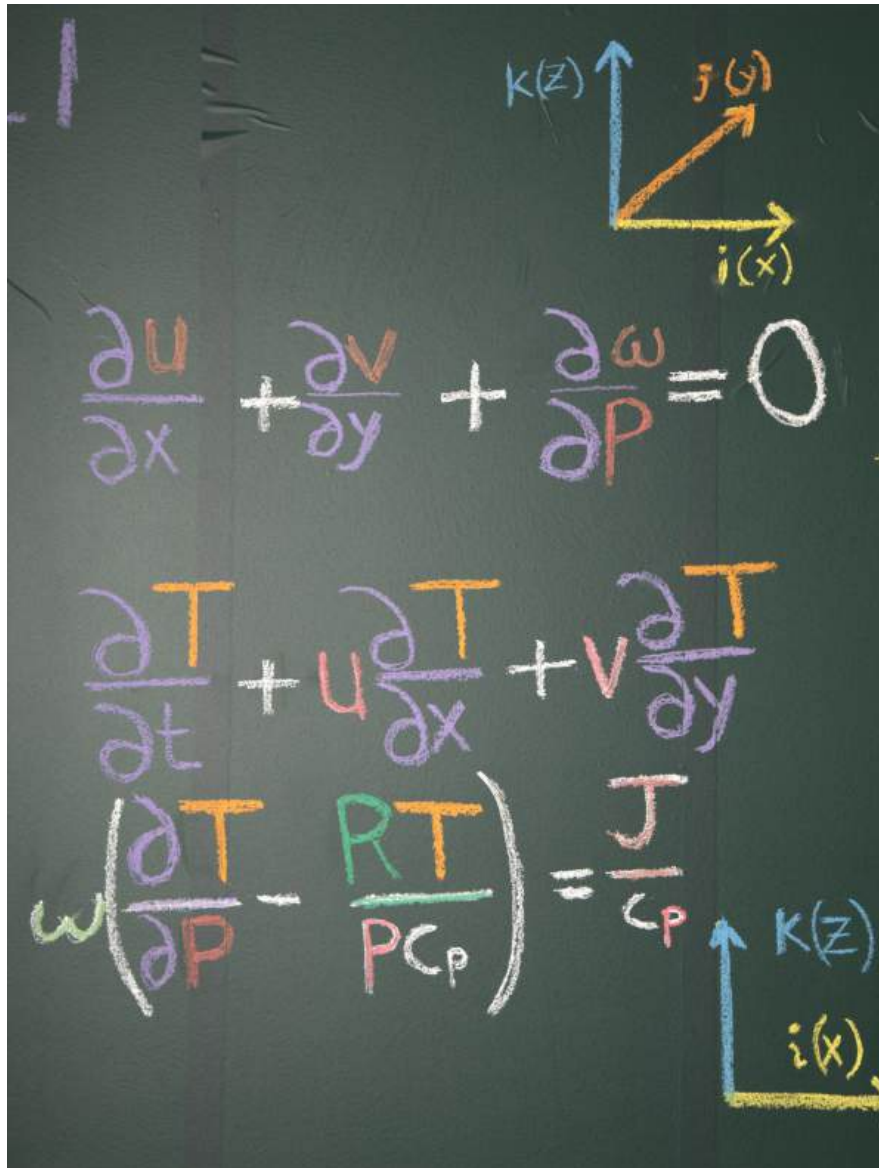 1
k(z) j(y)
i(x)
∂u/∂x + ∂v/∂y + ∂ω/∂P = 0
∂T/∂t + u ∂T/∂x + v ∂T/∂y
ω(∂T/∂P - RT/PCp) = J/Cp
K(z)
i(x)